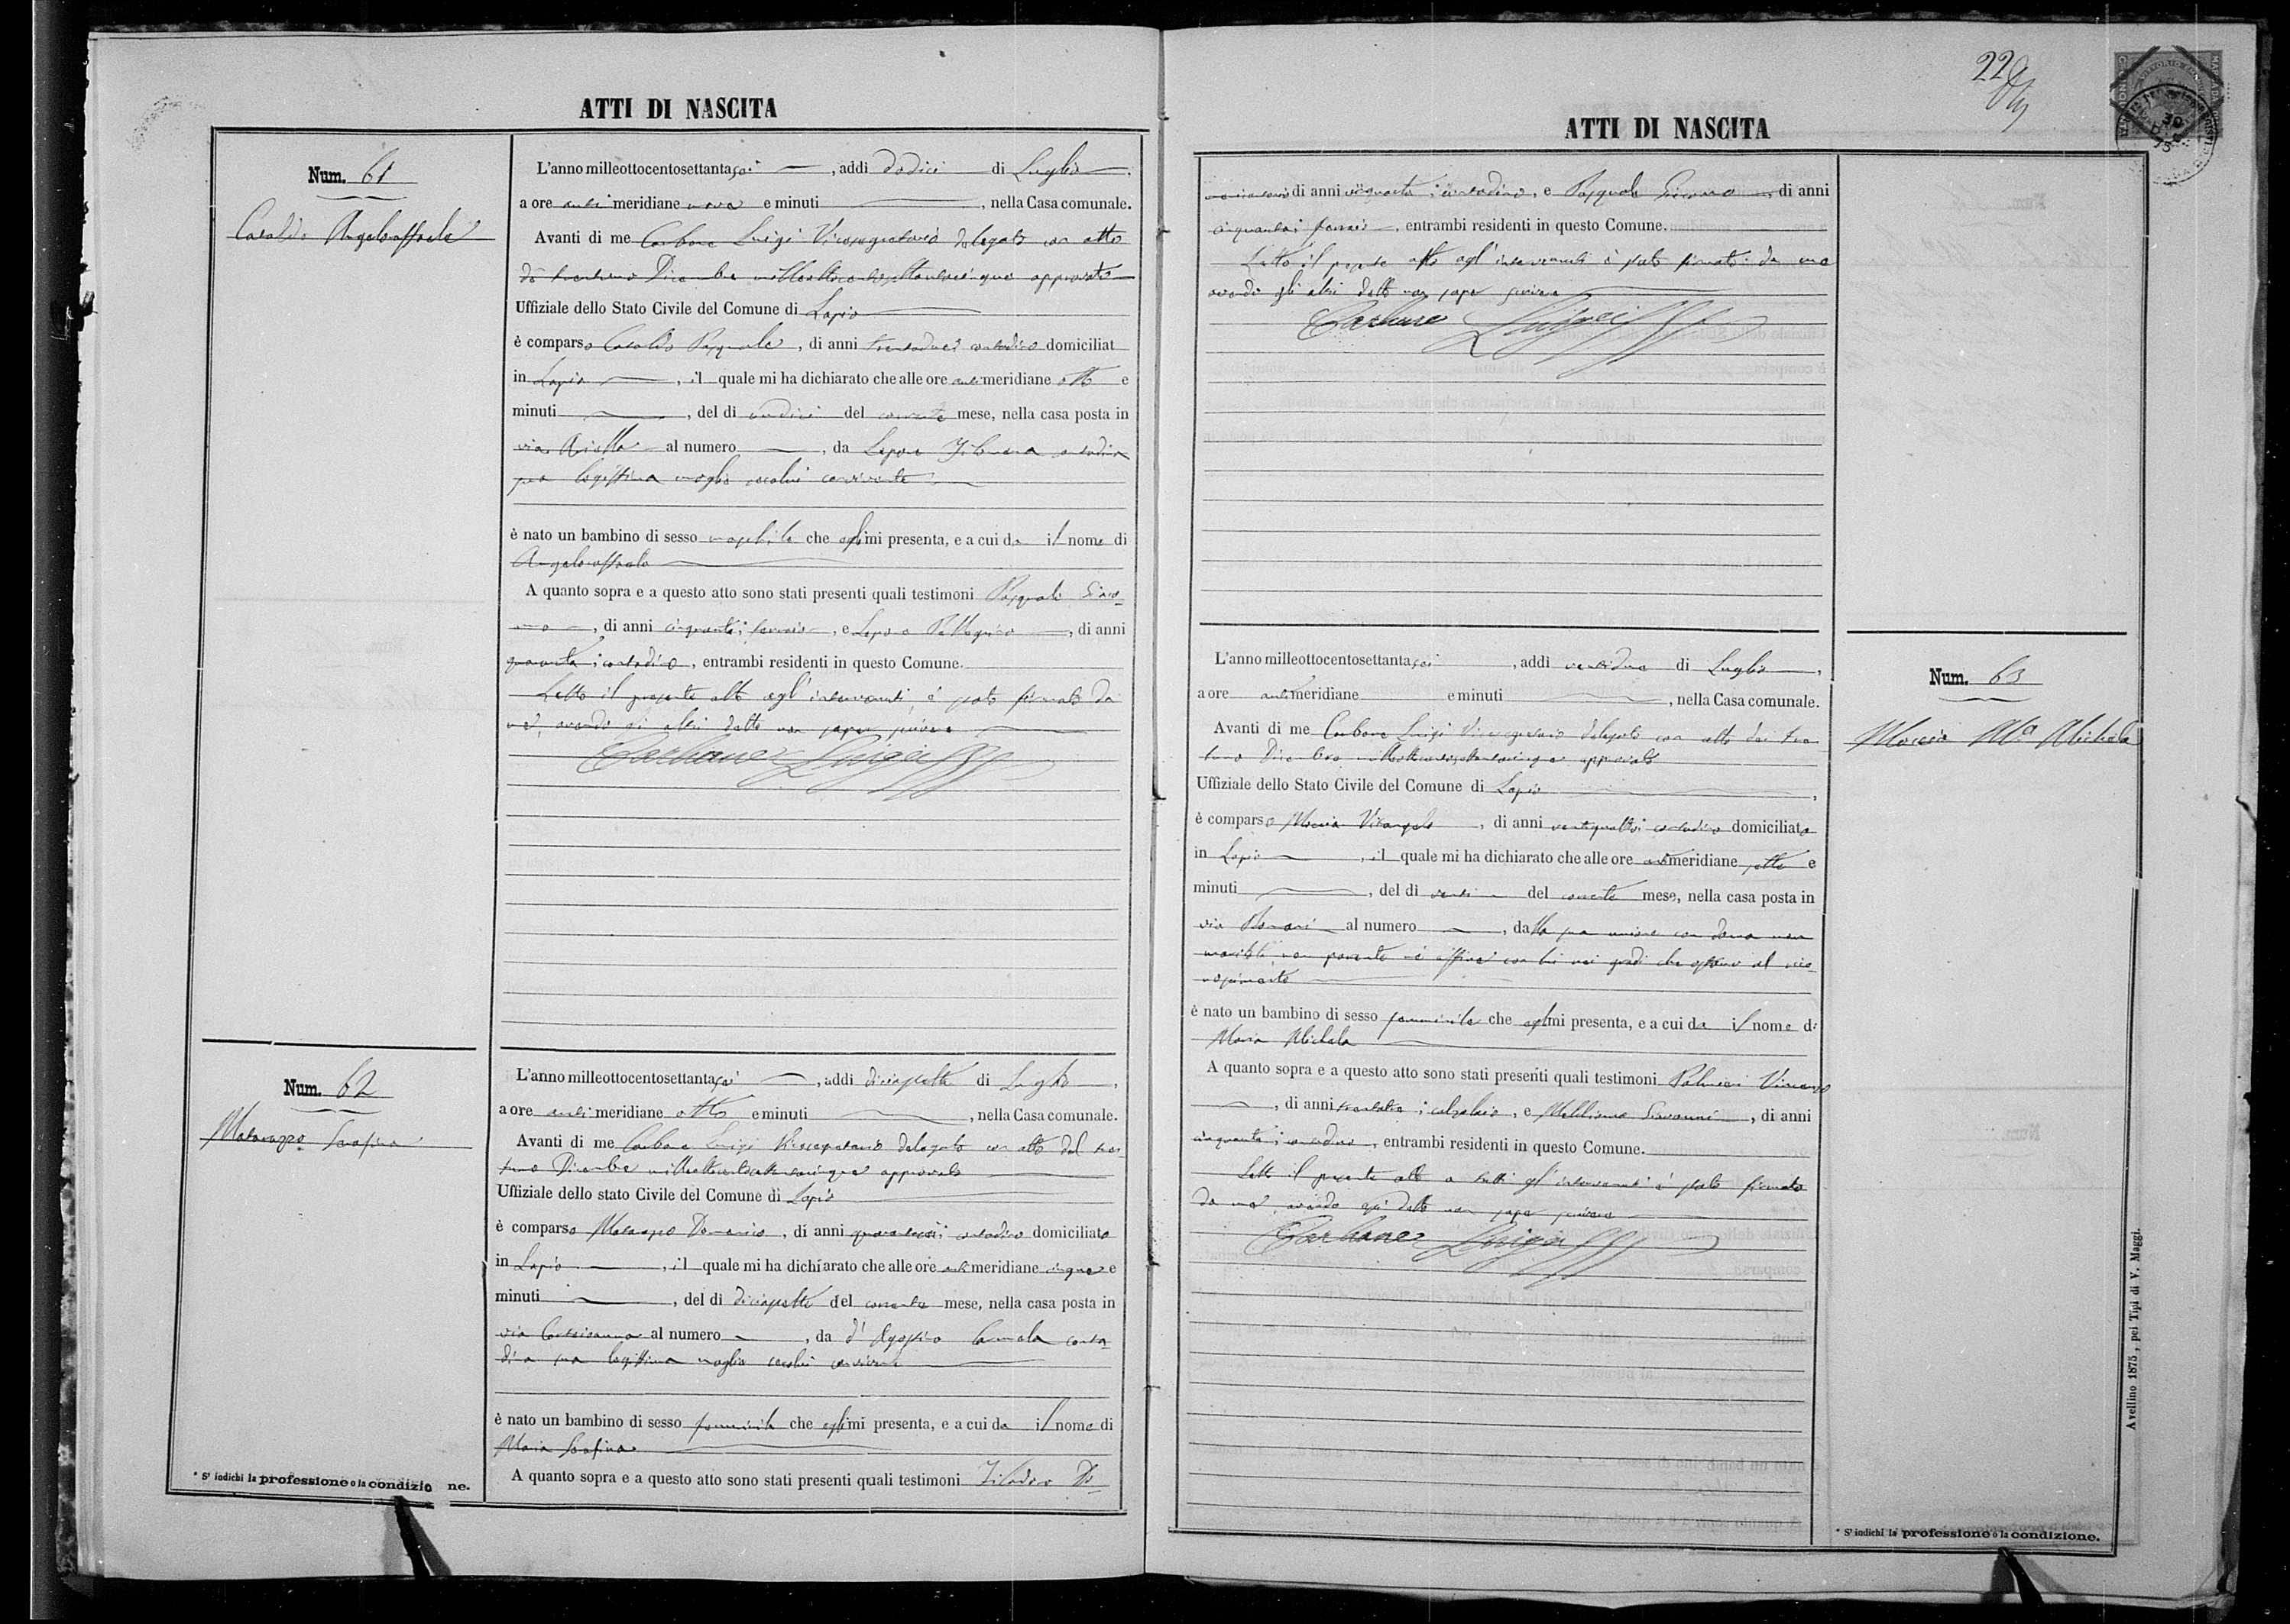 ATTI DI NASCITA
Num. 61
Caraldo Angeloraffaele
L'anno milleottocentosettantasei, addì dodici di Luglio,
a ore anti meridiane nove e minuti, nella Casa comunale.
Avanti di me Carbone Luigi Vicesegretario delegato con atto
del trentuno Dicembre milleottocentosettantacinque approvato
Uffiziale dello Stato Civile del Comune di Lapio
è comparso Caraldo Pasquale, di anni contadino domiciliat
in Lapio, il quale mi ha dichiarato che alle ore antimeridiane otto e
minuti, del dì undici del corrente mese, nella casa posta in
via Ariella al numero, da Lepore contadina
sua legittima moglie secolui convivente
è nato un bambino di sesso maschile che egli mi presenta, e a cui da il nome di
Angeloraffaele
A quanto sopra e a questo atto sono stati presenti quali testimoni Pasquale
di anni cinquanta, e Lepore Pellegrino, di anni
quaranta, contadino, entrambi residenti in questo Comune.
Letto il presente atto agl'intervenuti, è stato firmato da
me, avendo gli altri detto non saper scrivere
Carbone Luigi
Num. 62
Matarazzo Serafina
L'anno milleottocentosettantasei, addì diciassette di Luglio,
a ore anti meridiane otto e minuti, nella Casa comunale.
Avanti di me Carbone Luigi Vicesegretario delegato con atto del tren
tuno Dicembre milleottocentosettantacinque approvato
Uffiziale dello stato Civile del Comune di Lapio
è comparso Matarazzo Domenico, di anni contadino domiciliato
in Lapio, il quale mi ha dichiarato che alle ore anti meridiane cinque e
minuti, del dì diciassette del corrente mese, nella casa posta in
via al numero, da d'Agostino Carmela conta
dina sua legittima moglie secolui convivente
è nato un bambino di sesso femminile che egli mi presenta, e a cui da il nome di
Maria Serafina
A quanto sopra e a questo atto sono stati presenti quali testimoni
* S' indichi la professione o la condizione.
22
ATTI DI NASCITA
di anni contadino, e Pasquale, di anni
cinquanta, entrambi residenti in questo Comune.
Letto il presente atto agl'intervenuti è stato firmato da me
avendo gli altri detto non saper scrivere
Carbone Luigi
L'anno milleottocentosettantasei, addì ventidue di Luglio,
a ore antimeridiane e minuti, nella Casa comunale.
Avanti di me Carbone Luigi Vicesegretario delegato con atto del tren
tuno Dicembre milleottocentosettantacinque approvato
Uffiziale dello Stato Civile del Comune di Lapio
è comparso Moccia Vitangelo, di anni ventiquattro, contadino domiciliato
in Lapio, il quale mi ha dichiarato che alle ore antimeridiane sette e
minuti, del dì venti del corrente mese, nella casa posta in
via al numero, dalla sua unione con donna non
maritata, non parente nè affine con lui nei gradi che ostano al rico
noscimento
è nato un bambino di sesso femminile che egli mi presenta, e a cui da il nome di
Maria Michela
A quanto sopra e a questo atto sono stati presenti quali testimoni Palmieri Vincenzo
di anni calzolaio, e Giovanni, di anni
cinquanta, contadino, entrambi residenti in questo Comune.
Letto il presente atto a tutti gl'intervenuti è stato firmato
da me, avendo essi detto non saper scrivere
Carbone Luigi
Num. 63
Moccia Ma Michela
Avellino 1875, pei Tipi di V. Maggi.
* S' indichi la professione o la condizione.